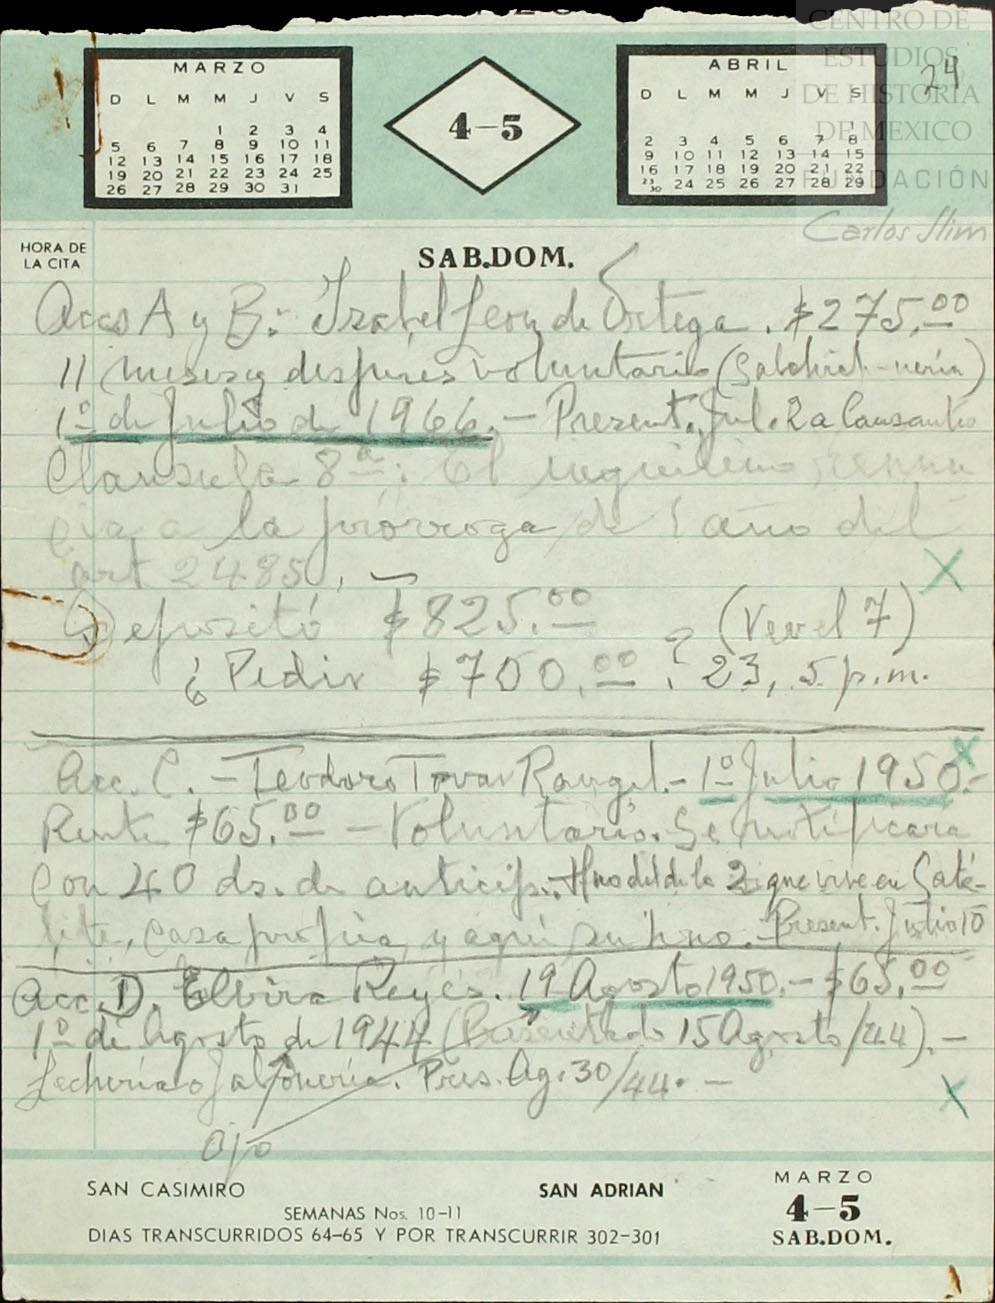 CENTRO DE
ESTUDIOS
DE HISTORIA
DE MEXICO
FUNDACIÓN
Carlos Slim
24
MARZO
D L M M J V S
1 2 3 4
5 6 7 8 9 10 11
12 13 14 15 16 17 18
19 20 21 22 23 24 25
26 27 28 29 30 31
4-5
ABRIL
D L M M J V S
1
2 3 4 5 6 7 8
9 10 11 12 13 14 15
16 17 18 19 20 21 22
23/30 24 25 26 27 28 29
HORA DE
LA CITA
SAB.DOM.
Accs A y B: Izabel Leon de Ortega. $275.00
11 meses y despues voluntario (
1º de Julio de 1966.- Present. Jul. 2 a Causante
Clausula 8ª: El inquilino renun
cia a la prórroga de 1 año del
art 2485,
Depositó $825.00 (Ver el 7)
¿Pedir $700.00? 23, 5 p.m.
Acc. C. - Teodoro Tovar Rangel.- 1º Julio 1950.-
Renta $65.00 - Voluntario. Se notificara
con 40 ds. de anticip.- Hno del de la 2 que vive en Saté-
lite, casa propia y aquí su hno. - Present. Julio 10
Acc. D. Elvira Reyes. 19 Agosto 1950.- $65.00
1º de Agosto de 1944 (Presentado 15 Agosto/44).-
Lecheria o Jaboneria. Pres. Ag. 30/44. -
Ojo
SAN CASIMIRO
SAN ADRIAN
SEMANAS Nos. 10-11
DIAS TRANSCURRIDOS 64-65 Y POR TRANSCURRIR 302-301
MARZO
4-5
SAB.DOM.